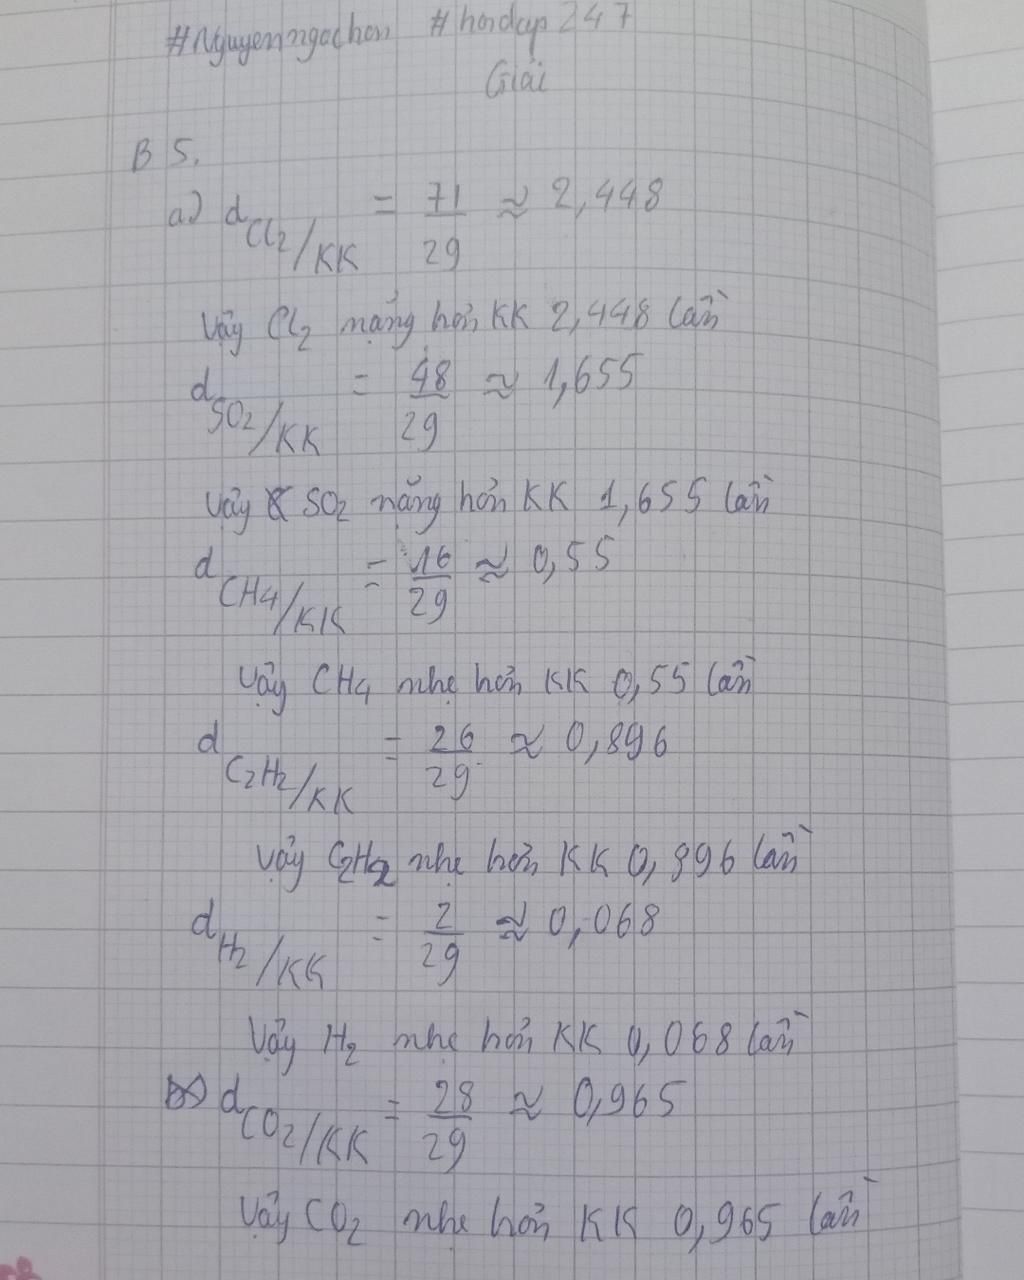 #Nguyenngochan #hoidap247
Giải
B 5.
a) d Cl2/KK = 71/29 ≈ 2,448
Vậy Cl2 nặng hơn KK 2,448 lần
d SO2/KK = 48/29 ≈ 1,655
Vậy SO2 nặng hơn KK 1,655 lần
d CH4/KK = 16/29 ≈ 0,55
Vậy CH4 nhẹ hơn KK 0,55 lần
d C2H2/KK = 26/29 ≈ 0,896
Vậy C2H2 nhẹ hơn KK 0,896 lần
d H2/KK = 2/29 ≈ 0,068
Vậy H2 nhẹ hơn KK 0,068 lần
d CO2/KK = 28/29 ≈ 0,965
Vậy CO2 nhẹ hơn KK 0,965 lần